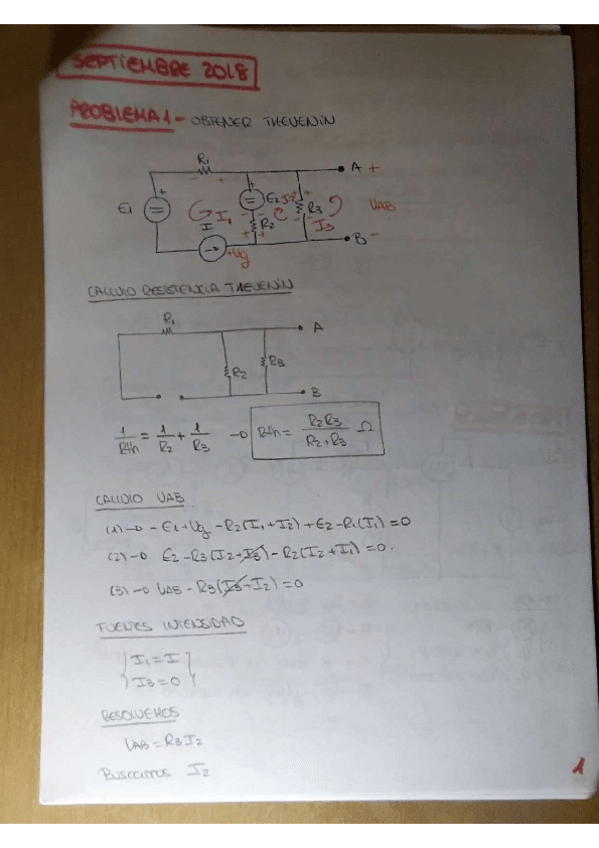 SEPTIEMBRE 2018
PROBLEMA 1- OBTENER THEVENIN
R1
A +
E1
I I1
E2 I2
R2
R3
I3
UAB
+Ug
B -
CALCULO RESISTENCIA THEVENIN
R1
A
R2
R3
B
1/Rth = 1/R2 + 1/R3 → Rth = R2R3/R2+R3 Ω
CALCULO UAB
(1)→ -E1+Ug -R2(I1+I2)+E2-R1(I1)=0
(2)→ E2-R3(I2+I3)-R2(I2+I1)=0.
(3)→ UAB - R3(I3+I2)=0
FUENTES INTENSIDAD
I1=I
I3=0
RESOLVEMOS
UAB=R3I2
BUSCAMOS I2
1